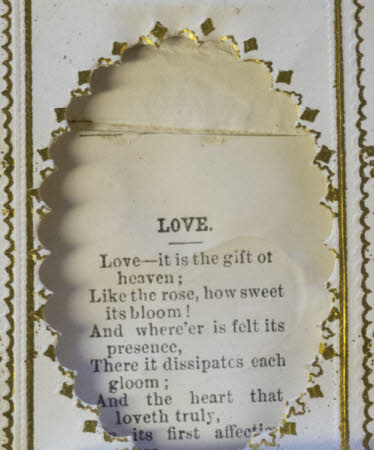 LOVE.
Love—it is the gift of
heaven;
Like the rose, how sweet
its bloom!
And where'er is felt its
presence,
There it dissipates each
gloom;
And the heart that
loveth truly,
its first affectio